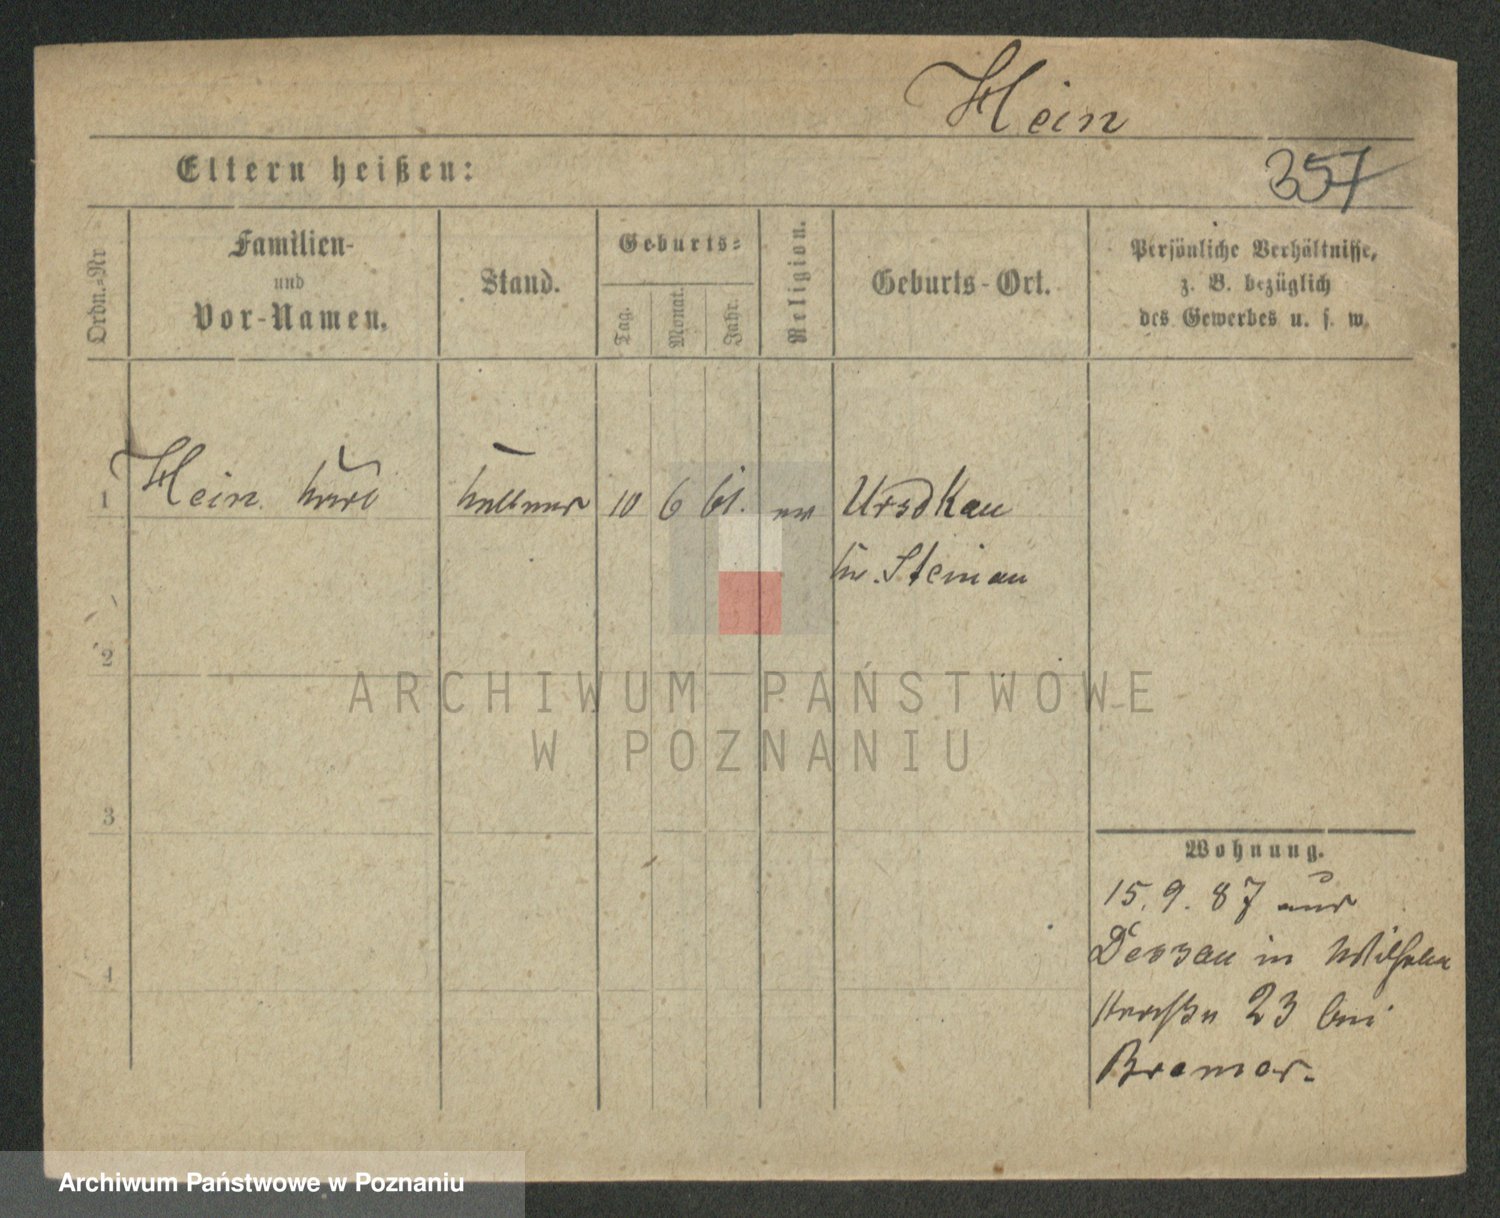 Hein
Eltern heißen:
357
Ordn.-Nr
Familien-
und
Vor-Namen.
Stand.
Geburts-
Tag.
Monat.
Jahr.
Religion.
Geburts-Ort.
Persönliche Verhältnisse,
z. B. bezüglich
des Gewerbes u. s. w.
1 Hein Karl Kellner 10 6 61. ev Urschkau
Kr. Steinau
2
ARCHIWUM PAŃSTWOWE
W POZNANIU
3
Wohnung.
15. 9. 87 aus
Dessau in Wilhelm
straße 23 bei
4
Archiwum Państwowe w Poznaniu